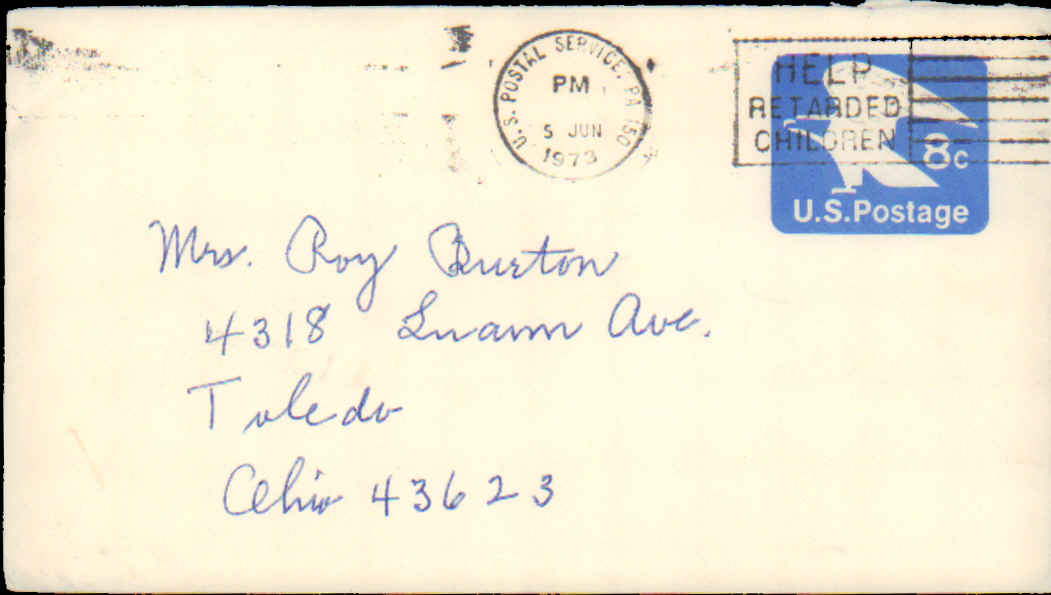 U.S. POSTAL SERVICE, PA 150
PM
5 JUN
1973
HELP
RETARDED
CHILDREN
8c
U.S.Postage
Mrs. Roy Burton
4318 Luann Ave.
Toledo
Ohio 43623